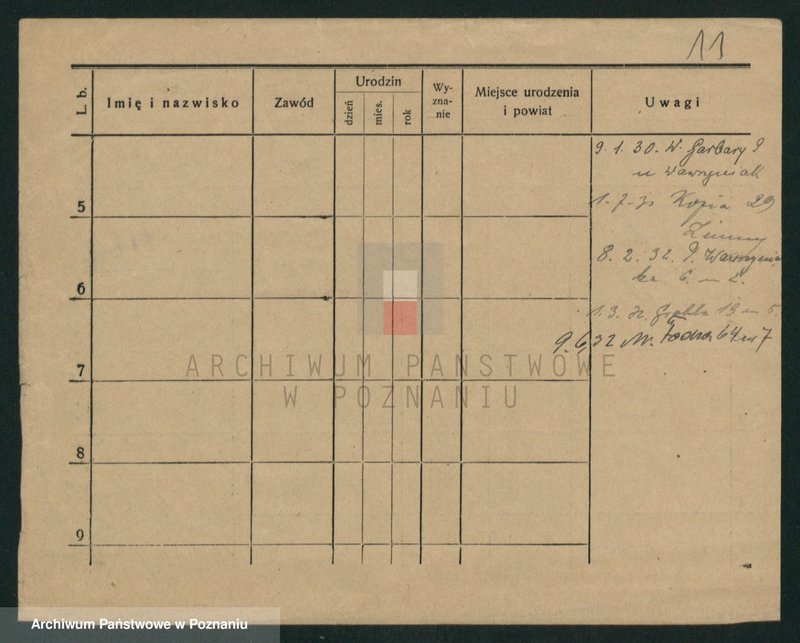 11
L. b.
Imię i nazwisko
Zawód
Urodzin
dzień
mies.
rok
Wy-
zna-
nie
Miejsce urodzenia
i powiat
Uwagi
9. 1. 30. W. Garbary 9
u Wawrzyniak
5
1. 7. 31 Kopia 29
8. 2. 32. P. Wawrzynia
ka 6.
6
1. 3. 13
9. 6. 32 64 7
7
8
9
ARCHIWUM PAŃSTWOWE
W POZNANIU
Archiwum Państwowe w Poznaniu